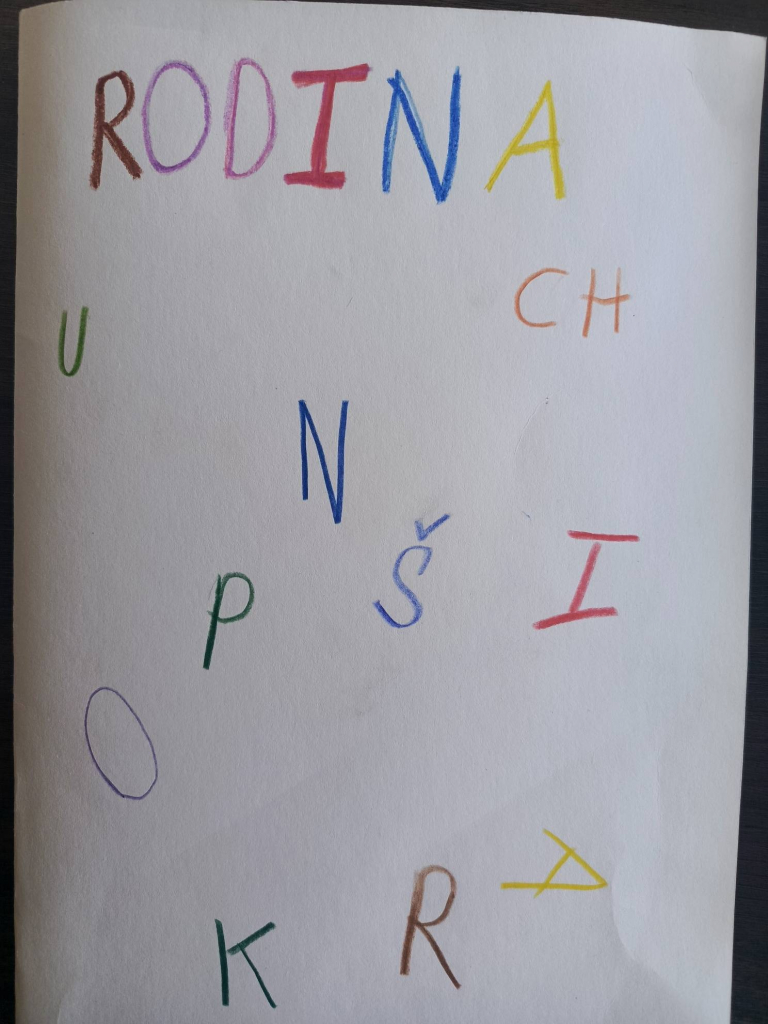 RODINA
CH
U
N
Š
I
P
O
A
R
K